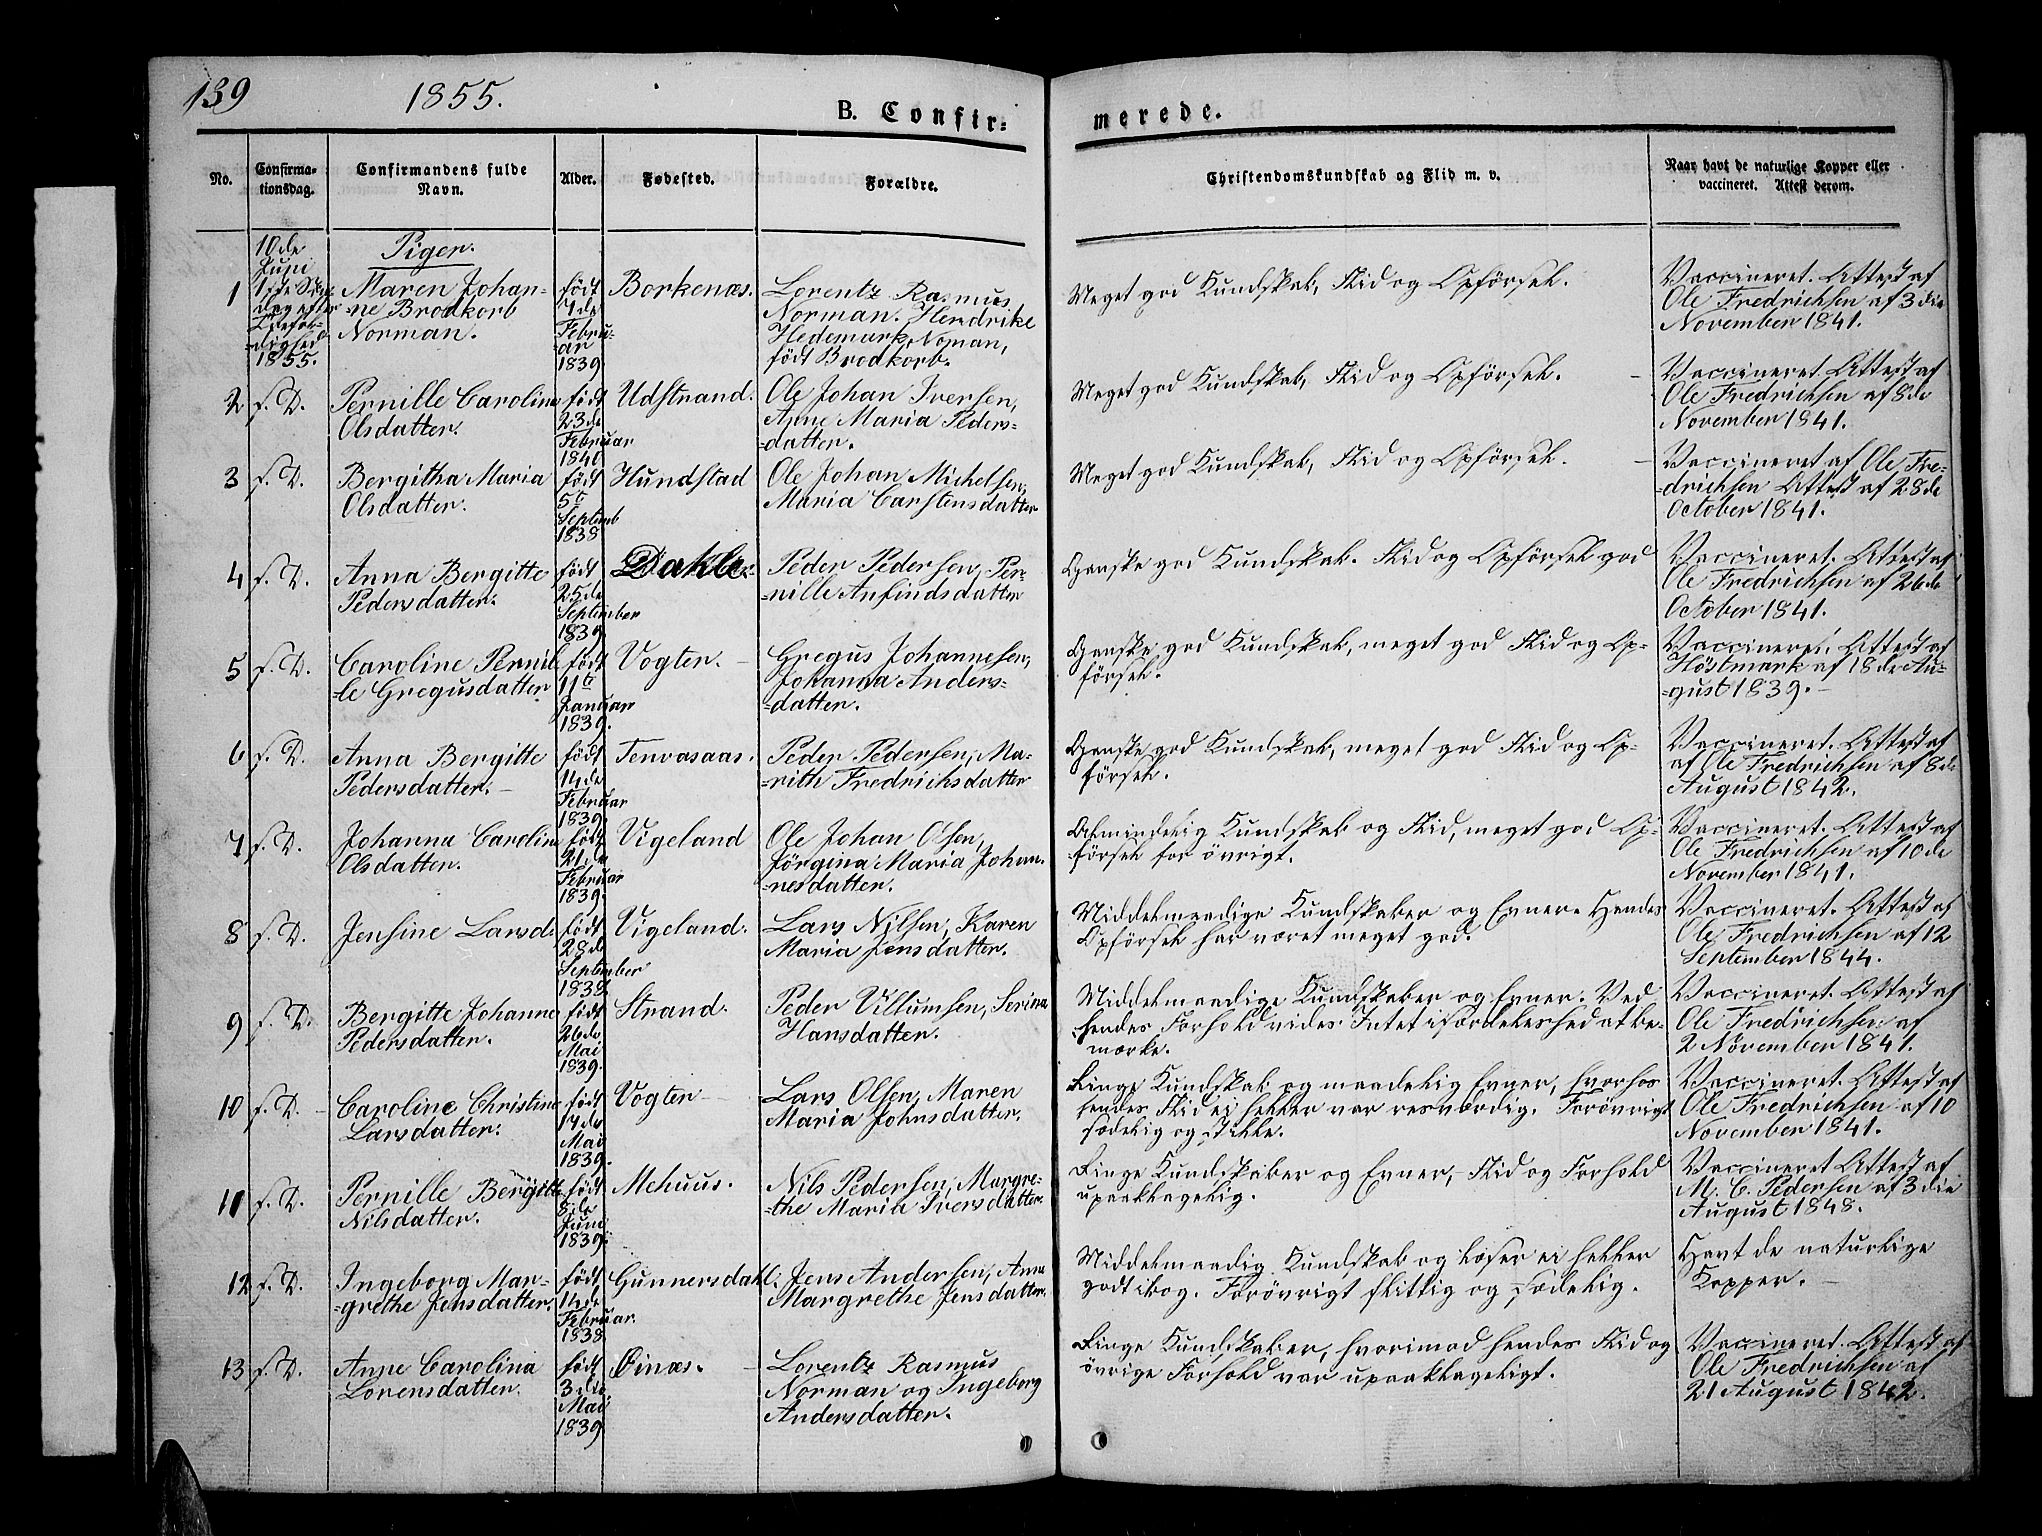 139
1855.
B. Confir-
merede.
No.
Confirma-
tionsdag.
Confirmandens fulde
Navn.
Alder.
Fødested.
Forældre.
Christendomskundskab og Flid m. v.
Naar havt de naturlige Kopper eller
vaccineret. Attest derom.
10de
Juni
1ste Søn-
dag efter
Trefol-
dighed
1855.
Piger.
1
Maren Johan-
-ne Brodkorb
Norman.
født
7de
Febru-
ar
1839.
Borkenæs.
Lorentz Rasmus
Norman. Hendrike
Hedemark Noman,
født Brodkorb.
Meget god Kundskab, Flid og Opførsel.
Vaccineret. Attest af
Ole Fredrichsen af 3die
November 1841.
2 f. D.
Pernille Carolina
Olsdatter.
født
23de
Februar
1840
Udstrand.
Ole Johan Iversen,
Anne Maria Peders-
-datter.
Meget god Kundskab, Flid og Opførsel.
Vaccineret. Attest af
Ole Fredrichsen af 8de
November 1841.
3 f. D.
Bergitha Maria
Olsdatter.
født
5te
Septemb
1838
Hundstad
Ole Johan Michelsen,
Maria Carstensdatter
Meget god Kundskab, Flid og Opførsel.
Vaccineret af Ole Fre-
-drichsen Attest af 28de
October 1841.
4 f. D.
Anna Bergitte
Pedersdatter.
født
25de
September
1839.
Dahle.
Peder Pedersen, Per-
-nille Anfindsdatter
Ganske god Kundskab. Flid og Opførsel god
Vaccineret. Attest af
Ole Fredrichsen af 26de
October 1841.
5 f. D.
Caroline Pernil-
-le Gregusdatter
født
11te
Januar
1839.
Vogter.
Gregus Johannesen,
Johanna Anders-
-datter.
Ganske god Kundskab, meget god Flid og Op-
førsel.
Vaccineret. Attest af
Høstmark af 18de Au-
-gust 1839.
6 f. D.
Anna Bergitte
Pedersdatter.
født
14de
Februar
1839.
Tenvasaas.
Peder Pedersen, Ma-
-rith Fredrichsdatter
Ganske god Kundskab, meget god Flid og Op-
førsel.
Vaccineret. Attest af
af Ole Fredrichsen af 8de
August 1842.
7 f. D.
Johanna Carolina
Olsdatter.
født
21de
Februar
1839.
Vigeland
Ole Johan Olsen,
Jörgina Maria Johan-
-nesdatter.
Almindelig Kundskab og Flid, meget god Op-
førsel for övrigt.
Vaccineret. Attest af
Ole Fredrichsen af 10de
November 1841.
8 f. D.
Jensine Larsd.
født
28de
September
1838.
Vigeland.
Lars Nilsen, Karen
Maria Jensdatter.
Middelmaadige Kundskaber og Evner. Hendes
Opførsel har været meget god.
Vaccineret. Attest af
Ole Fredrichsen af 12
September 1844.
9 f. D.
Bergitte Johanne
Pedersdatter.
født
26de
Mai
1839.
Strand.
Peder Villumsen, Serina
Hansdatter.
Middelmaadige Kundskaber og Evner. Ved
hendes Forhold vides Intet isærdeleshed at be-
mærke.
Vaccineret. Attest af
Ole Fredrichsen af
2 November 1841.
10 f. D.
Caroline Christine
Larsdatter.
født
17de
Mai
1839.
Vogter
Lars Olsen, Maren
Maria Johnsdatter.
Ringe Kundskab og maadelig Evner, hvorhos
hendes Flid ei heller var rosværdig. Forövrigt
sædelig og stille.
Vaccineret. Attest af
Ole Fredrichsen af 10
November 1841.
11 f. D.
Pernille Bergitte
Nilsdatter.
født
8de
Juni
1839.
Mehuus.
Nils Pedersen, Margre-
-the Maria Iversdatter.
Ringe Kundskaber og Evner, Flid og Forhold
upaaklagelig.
Vaccineret Attest af
M. C. Pedersen af 3die
August 1848.
12 f. D.
Ingeborg Mar-
-grethe Jensdatter.
født
14de
Februar
1838.
Gunnersdahl.
Jens Andersen, Anne
Margrethe Jensdatter.
Middelmaadig Kundskab og læser ei heller
godt i bog. Forövrigt flittig og sædelig.
Havt de naturlige
Kopper.
13 f. D.
Anne Carolina
Lorensdatter
født
3die
Mai
1839
Öinæs.
Lorentz Rasmus
Norman og Ingeborg
Andersdatter.
Ringe Kundskaber, hvorimod hendes Flid og
övrige Forhold var upaaklageligt.
Vaccineret. Attest af
Ole Fredrichsen af
21 August 1842.